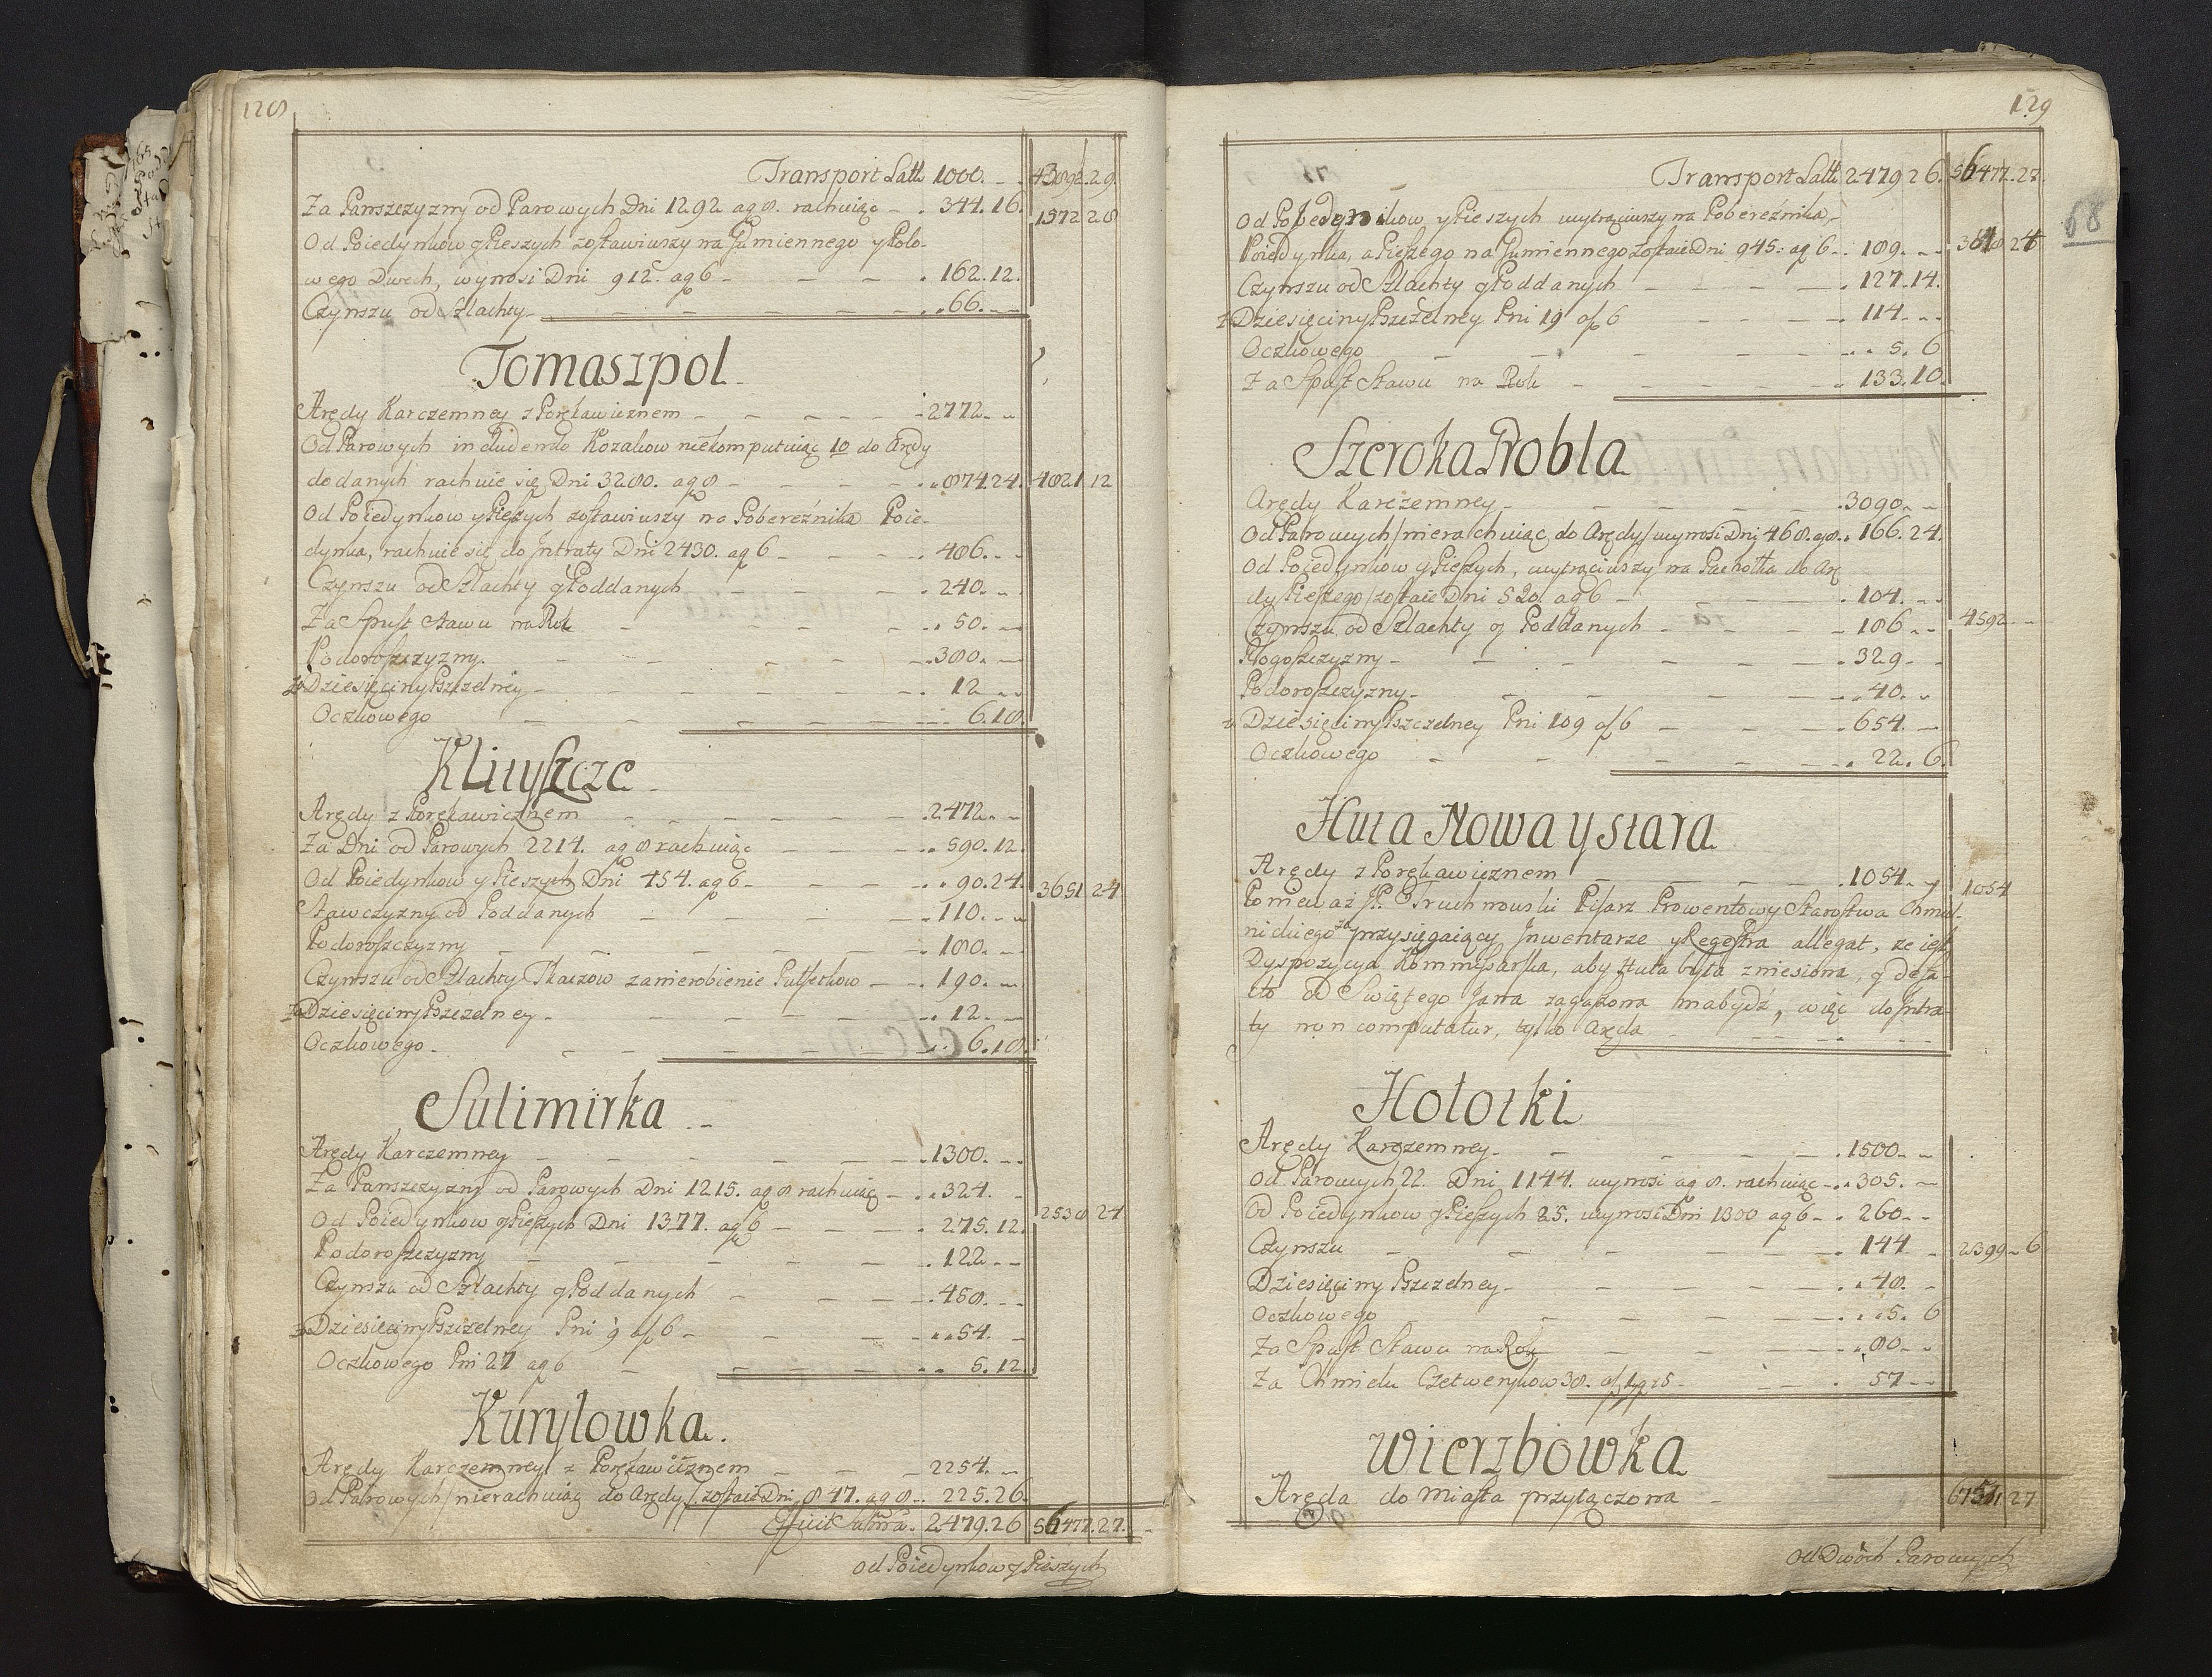 128
Transport Latt 1000. 43892.29.
Za Panszczyzny od Parowych Dni 1292 a g 8. rachuiąc 344.16. 1572 28
Od Poiedynkow y Pieszych zostawiwszy na Gumiennego y Polo-
wego Dwoch, wynosi Dni 912. a g 6 162.12.
Czynszu od Szlachty 66.
Tomaszpol
Arędy Karczemney z Porękawicznem 2772.
Od Parowych includendo Kozakow niekomputuiąc 10 do Arędy
dodanych rachuie się Dni 3280. a g 8 874.24. 4821 12
Od Poiedynkow y Pieszych zostawiwszy na Pobereźnika Poie-
dynka, rachuie się do Jntraty Dni 2430. a g 6 486.
Czynszu od Szlachty y Poddanych 240.
Za Spust Stawu na Rok 50.
Podoroszczyzny. 380.
Za Dziesięciny Pszczelney 12
Oczkowego 6.18.
Klityszcze
Arędy z Porękawicznem 2472.
Za Dni od Parowych 2214. a g 8 rachuiąc 590.12.
Od Poiedynkow y Pieszych Dni 454. a g 6 90.24. 3651 24
Stawczyzny od Poddanych 110.
Podoroszczyzny 180.
Czynszu od Szlachty Tkaczow zanierobienie Pułsetkow 190.
Za Dziesięciny Pszczelney 12.
Oczkowego 6.18.
Sulimirka
Arędy Karczemney 1300.
Za Panszczyzny od Parowych Dni 1215. a g 8 rachuiąc 324.
Od Poiedynkow y Pieszych Dni 1377. a g 6 275.12. 2538 24
Podoroszczyzny 122
Czynszu od Szlachty y Poddanych 458.
Za Dziesięciny Pszczelney Pni 9 a f 6 54.
Oczkowego Pni 27 a g 6 5.12.
Kuryłowka.
Arędy Karczemney z Porękawicznem 2254.
Od Parowych /nierachuiąc do Arędy/ zostaie Dni 847. a g 8 225.26.
Efficit summa. 2479.26 56477.27.
Od Poiedynkow y Pieszych
129
68
Transport Latt 2479 26. 56477.27.
Od Poiedynkow y Pieszych wytrąciwszy na Pobereźnika
Poiedynka, a Pieszego na Gumiennego zostaie Dni 945. a g 6 189. 3048 26
Czynszu od Szlachty y Poddanych 127.14.
Z Dziesięciny Pszczelney Pni 19 a f 6 114
Oczkowego 5. 6
Za Spust Stawu na Rok 133.10.
Szeroka Hrobla
Arędy Karczemney 3090.
Od Parowych /nierachuiąc do Arędy/ wynosi Dni 468. a g 8. 166.24.
Od Poiedynkow y Pieszych, wytrąciwszy na Pachołka do Arę
dy Pieszego /zostaie Dni 520. a g 6 104.
Czynszu od Szlachty y Poddanych 186 4592
Rogoszczyzny 329
Podoroszczyzny 40.
Z Dziesięciny Pszczelney Pni 109 a f 6 654.
Oczkowego 22. 6.
Huta Nowa y stara
Arędy z Porękawicznem 1054. 1054
Poniewaź JP. Truchnowski Pisarz Prowentowy Starostwa Chmiel-
nickiego za przysięgaiący Jnwentarze y Regestra allegat, ze iest
Dyspozycya Kommissarska, aby Huta była zniesiona, y do Ja-
ko od Swiętego Jana zagaszona mabydź, więc do Jntra-
ty non computatur, tylko Aręda
Hołotki
Arędy Karczemney 1500.
Od Parowych 22. Dni 1144. wynosi a g 8. rachuiąc 305.
Od Poiedynkow y Pieszych 25. wynosi Dni 1300 a g 6 260
Czynszu 144 2399 6
Dziesięciny Pszczelney 48.
Oczkowego 5. 6
Za Spust Stawu na Rok 80.
Za Chmielu Czetwerykow 38. a f 1 g 15 57
Wierzbowka
Aręda do Miasta przyłączona 67571 27
Od Dwoch Parowych